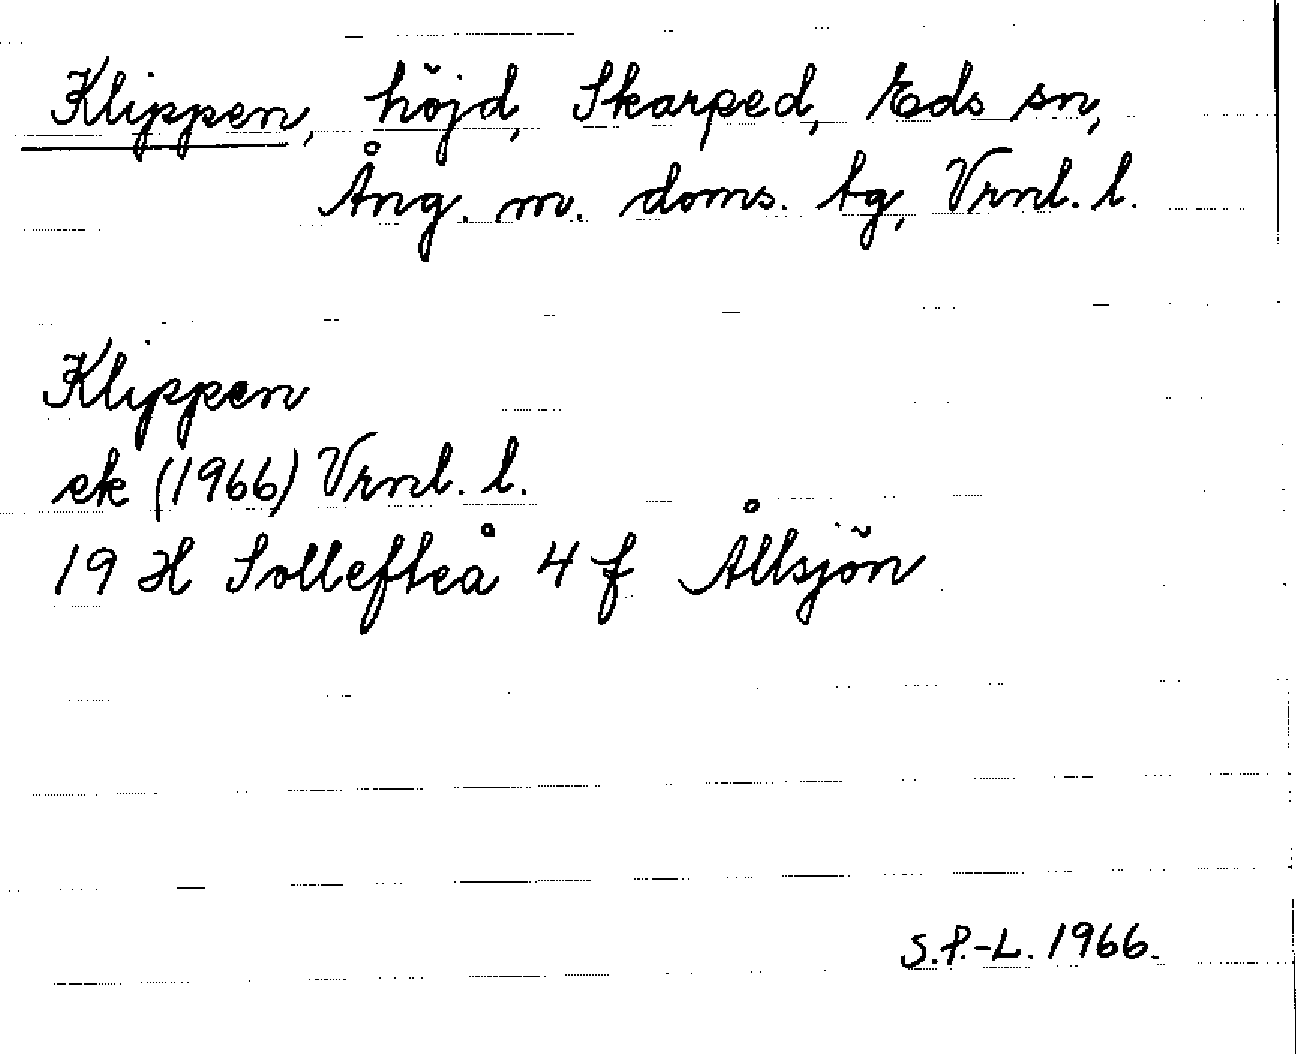 Klippen, höjd, Skarped, Eds sn,
Ång. m. doms. tg, Vrnl. l.
Klippen
ek (1966) Vrnl. l.
19 H Sollefteå 4 f Ållsjön
S.P.-L. 1966.